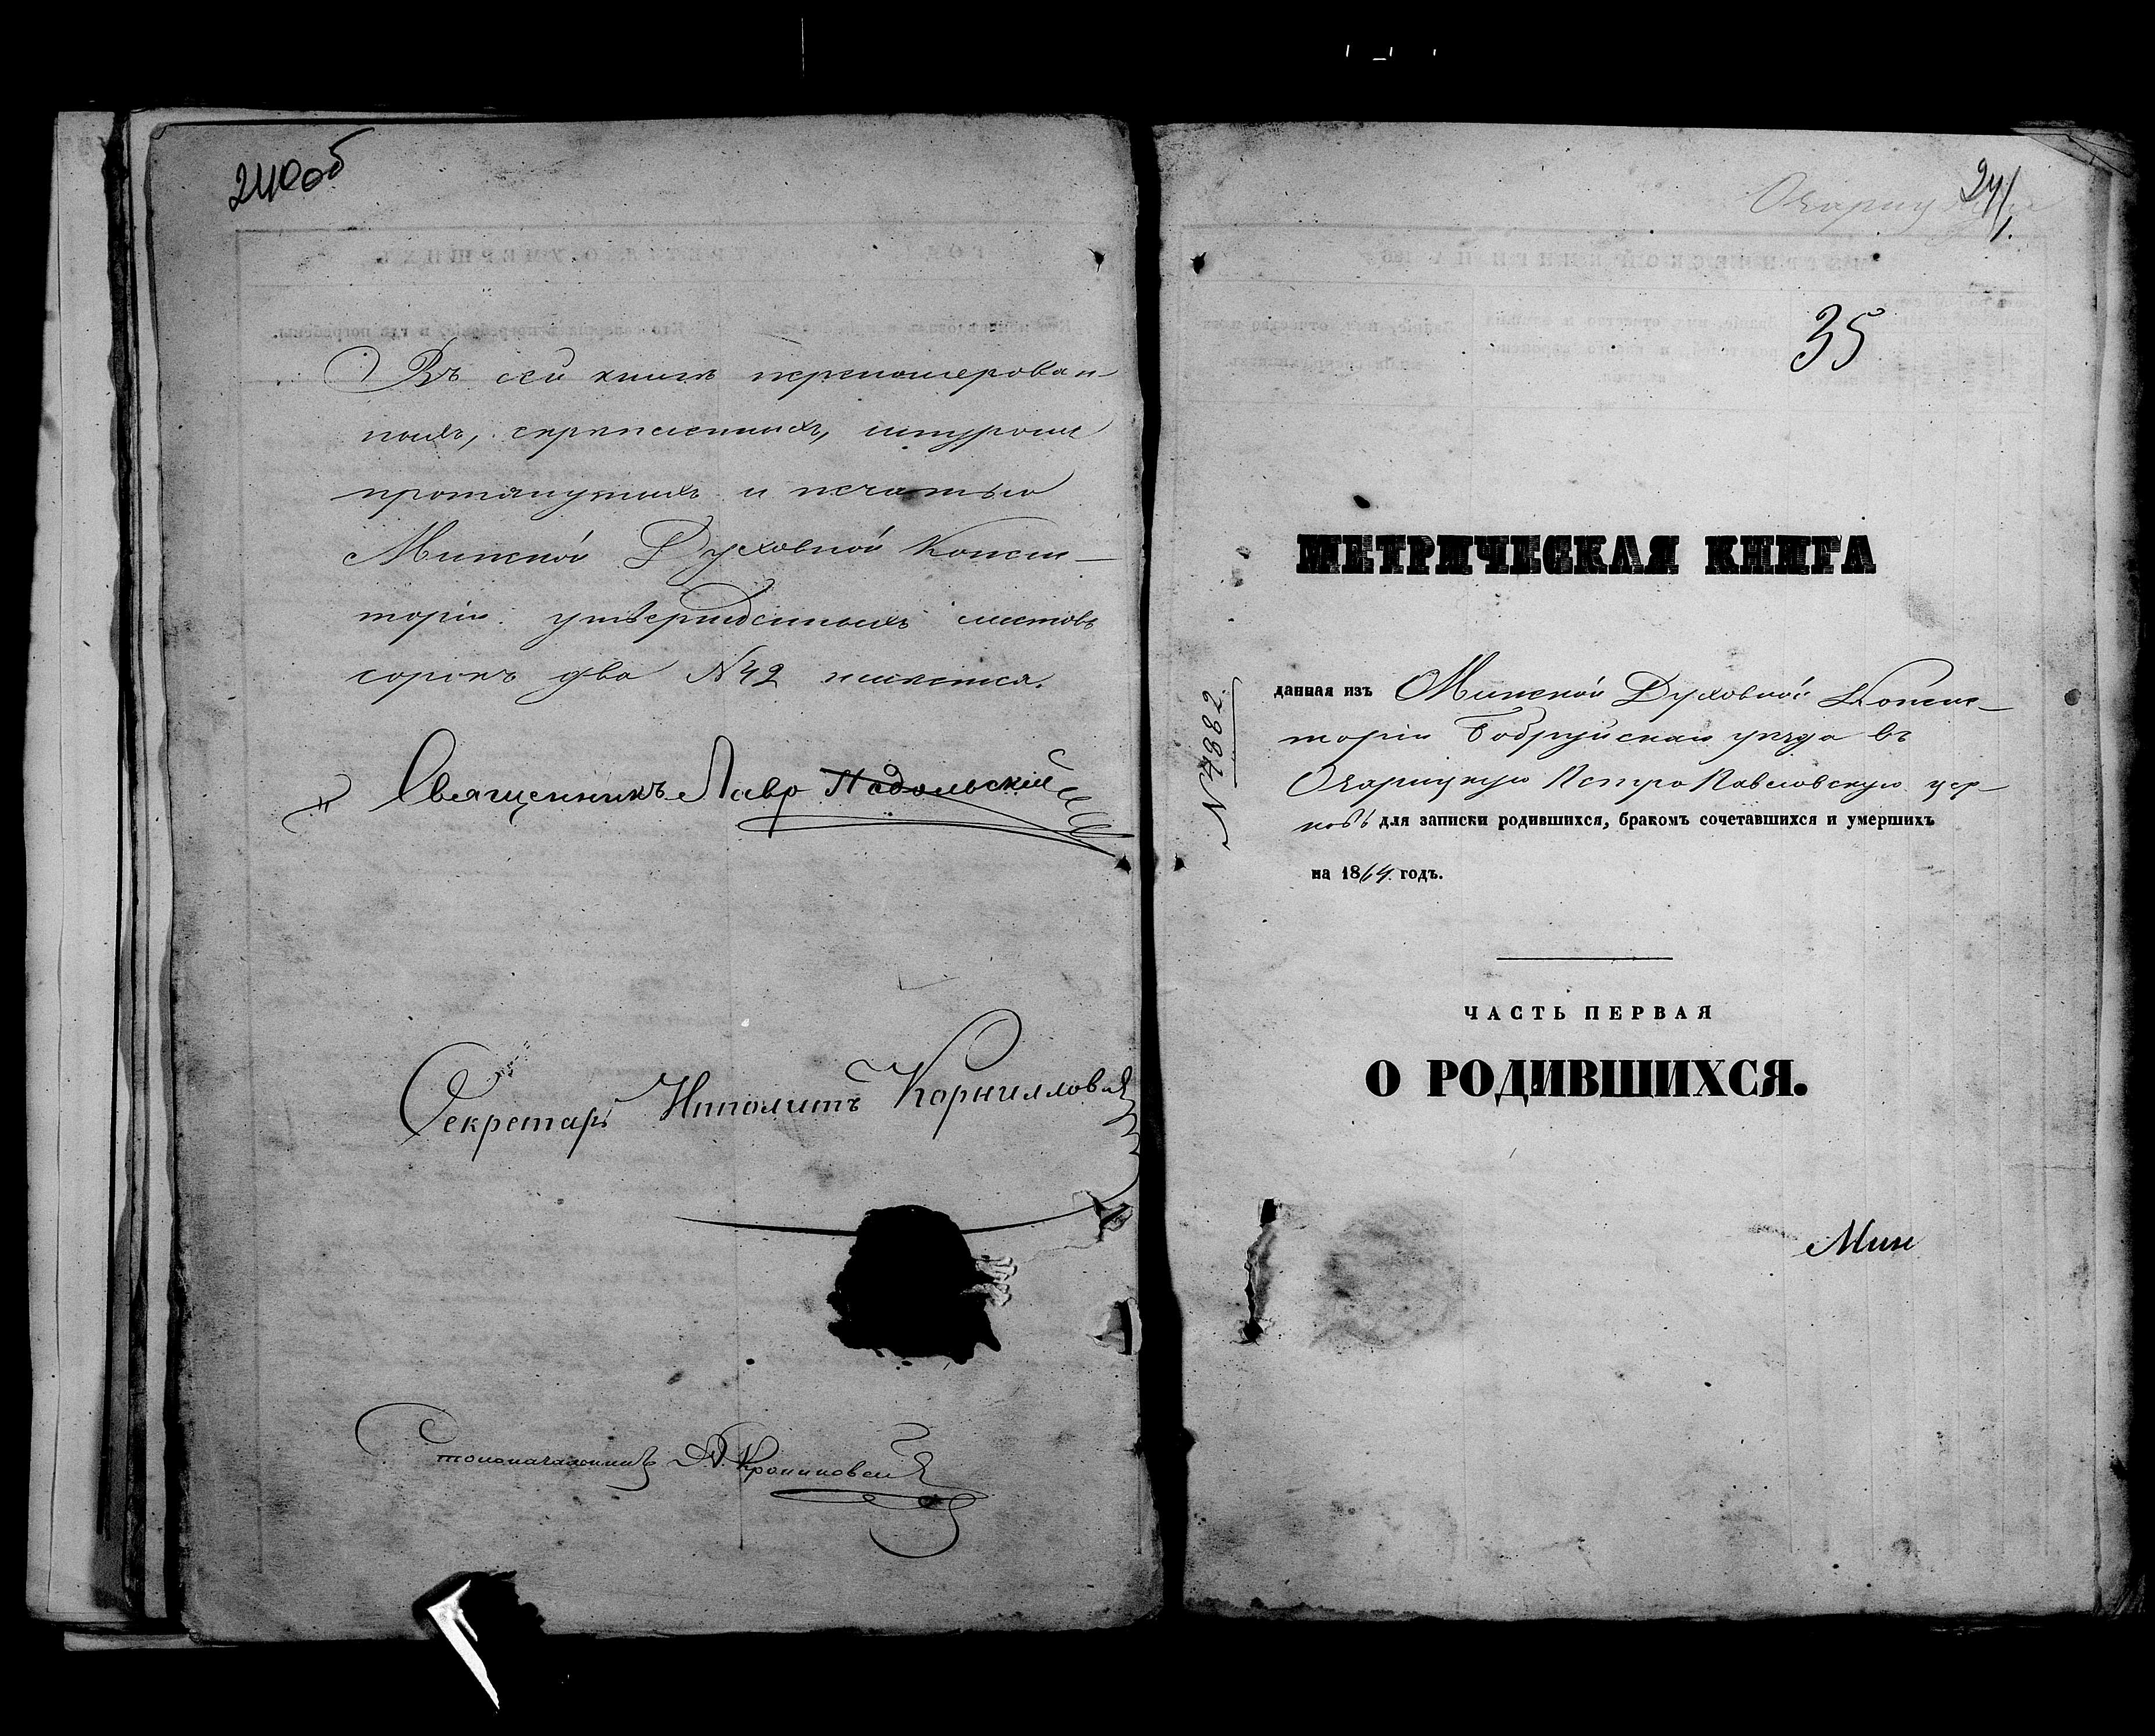 240об
Въ сей книгѣ перенумерован-
ныхъ, скрѣпленныхъ, шнуромъ
протянутыхъ и печатью
Минской Духовной Консис-
торіи утвержденныхъ листовъ
сорокъ два N 42 имѣется.
Священникъ Лавр Подольскій
Секретарь Ипполитъ
Столоначальникъ А.
241
35
МЕТРИЧЕСКАЯ КНИГА
N 4882.
данная изъ Минской Духовной Консис-
торіи Бобруйскаго уѣзда въ
Озарицкую Петро Павловскую цер-
ковь для записки родившихся, бракомъ сочетавшихся и умершихъ
на 1864 годъ.
ЧАСТЬ ПЕРВАЯ
О РОДИВШИХСЯ.
Мин